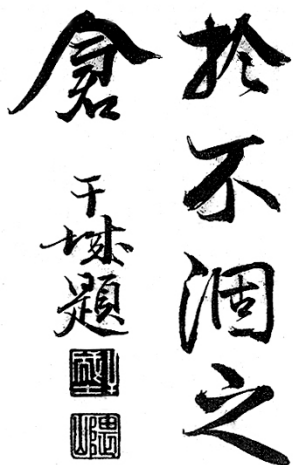 於不涸之
倉
干城題